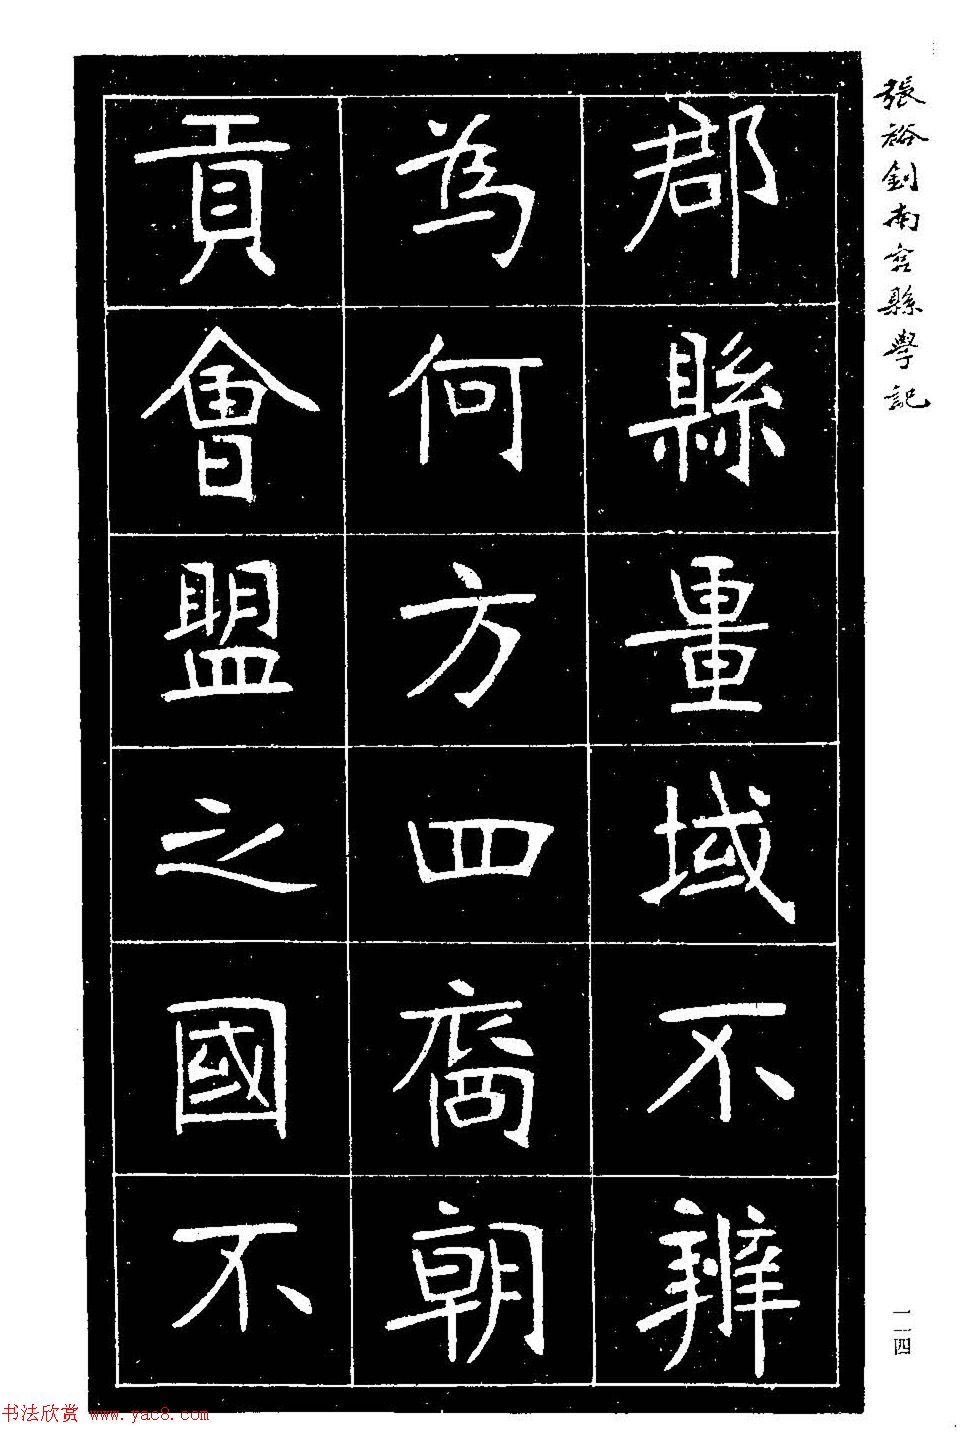 張裕釗南宮縣學記
郡縣畺域不辨
為何方四裔朝
貢會盟之國不
一一四
书法欣赏 www.yac8.com